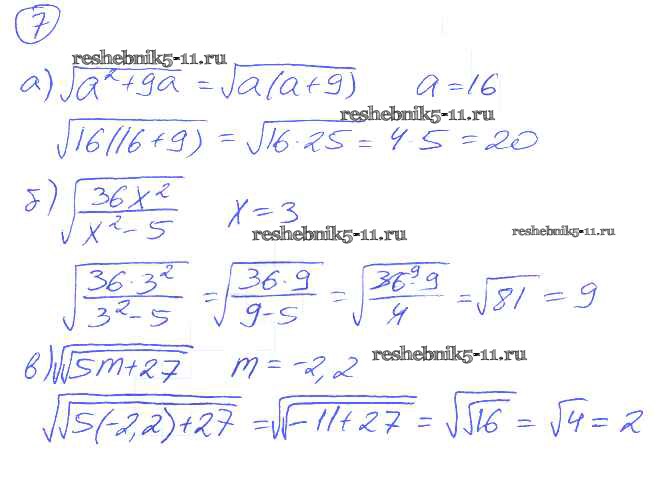 7
reshebnik5-11.ru
а) √(a² + 9a) = √(a(a + 9)) a = 16
reshebnik5-11.ru
√(16(16 + 9)) = √(16 · 25) = 4 · 5 = 20
б) √(36x² / (x² - 5)) x = 3
reshebnik5-11.ru reshebnik5-11.ru
√(36 · 3² / (3² - 5)) = √(36 · 9 / (9 - 5)) = √(36⁹ · 9 / 4) = √81 = 9
в) √√(5m + 27) m = -2,2 reshebnik5-11.ru
√√(5(-2,2) + 27) = √√(-11 + 27) = √√16 = √4 = 2